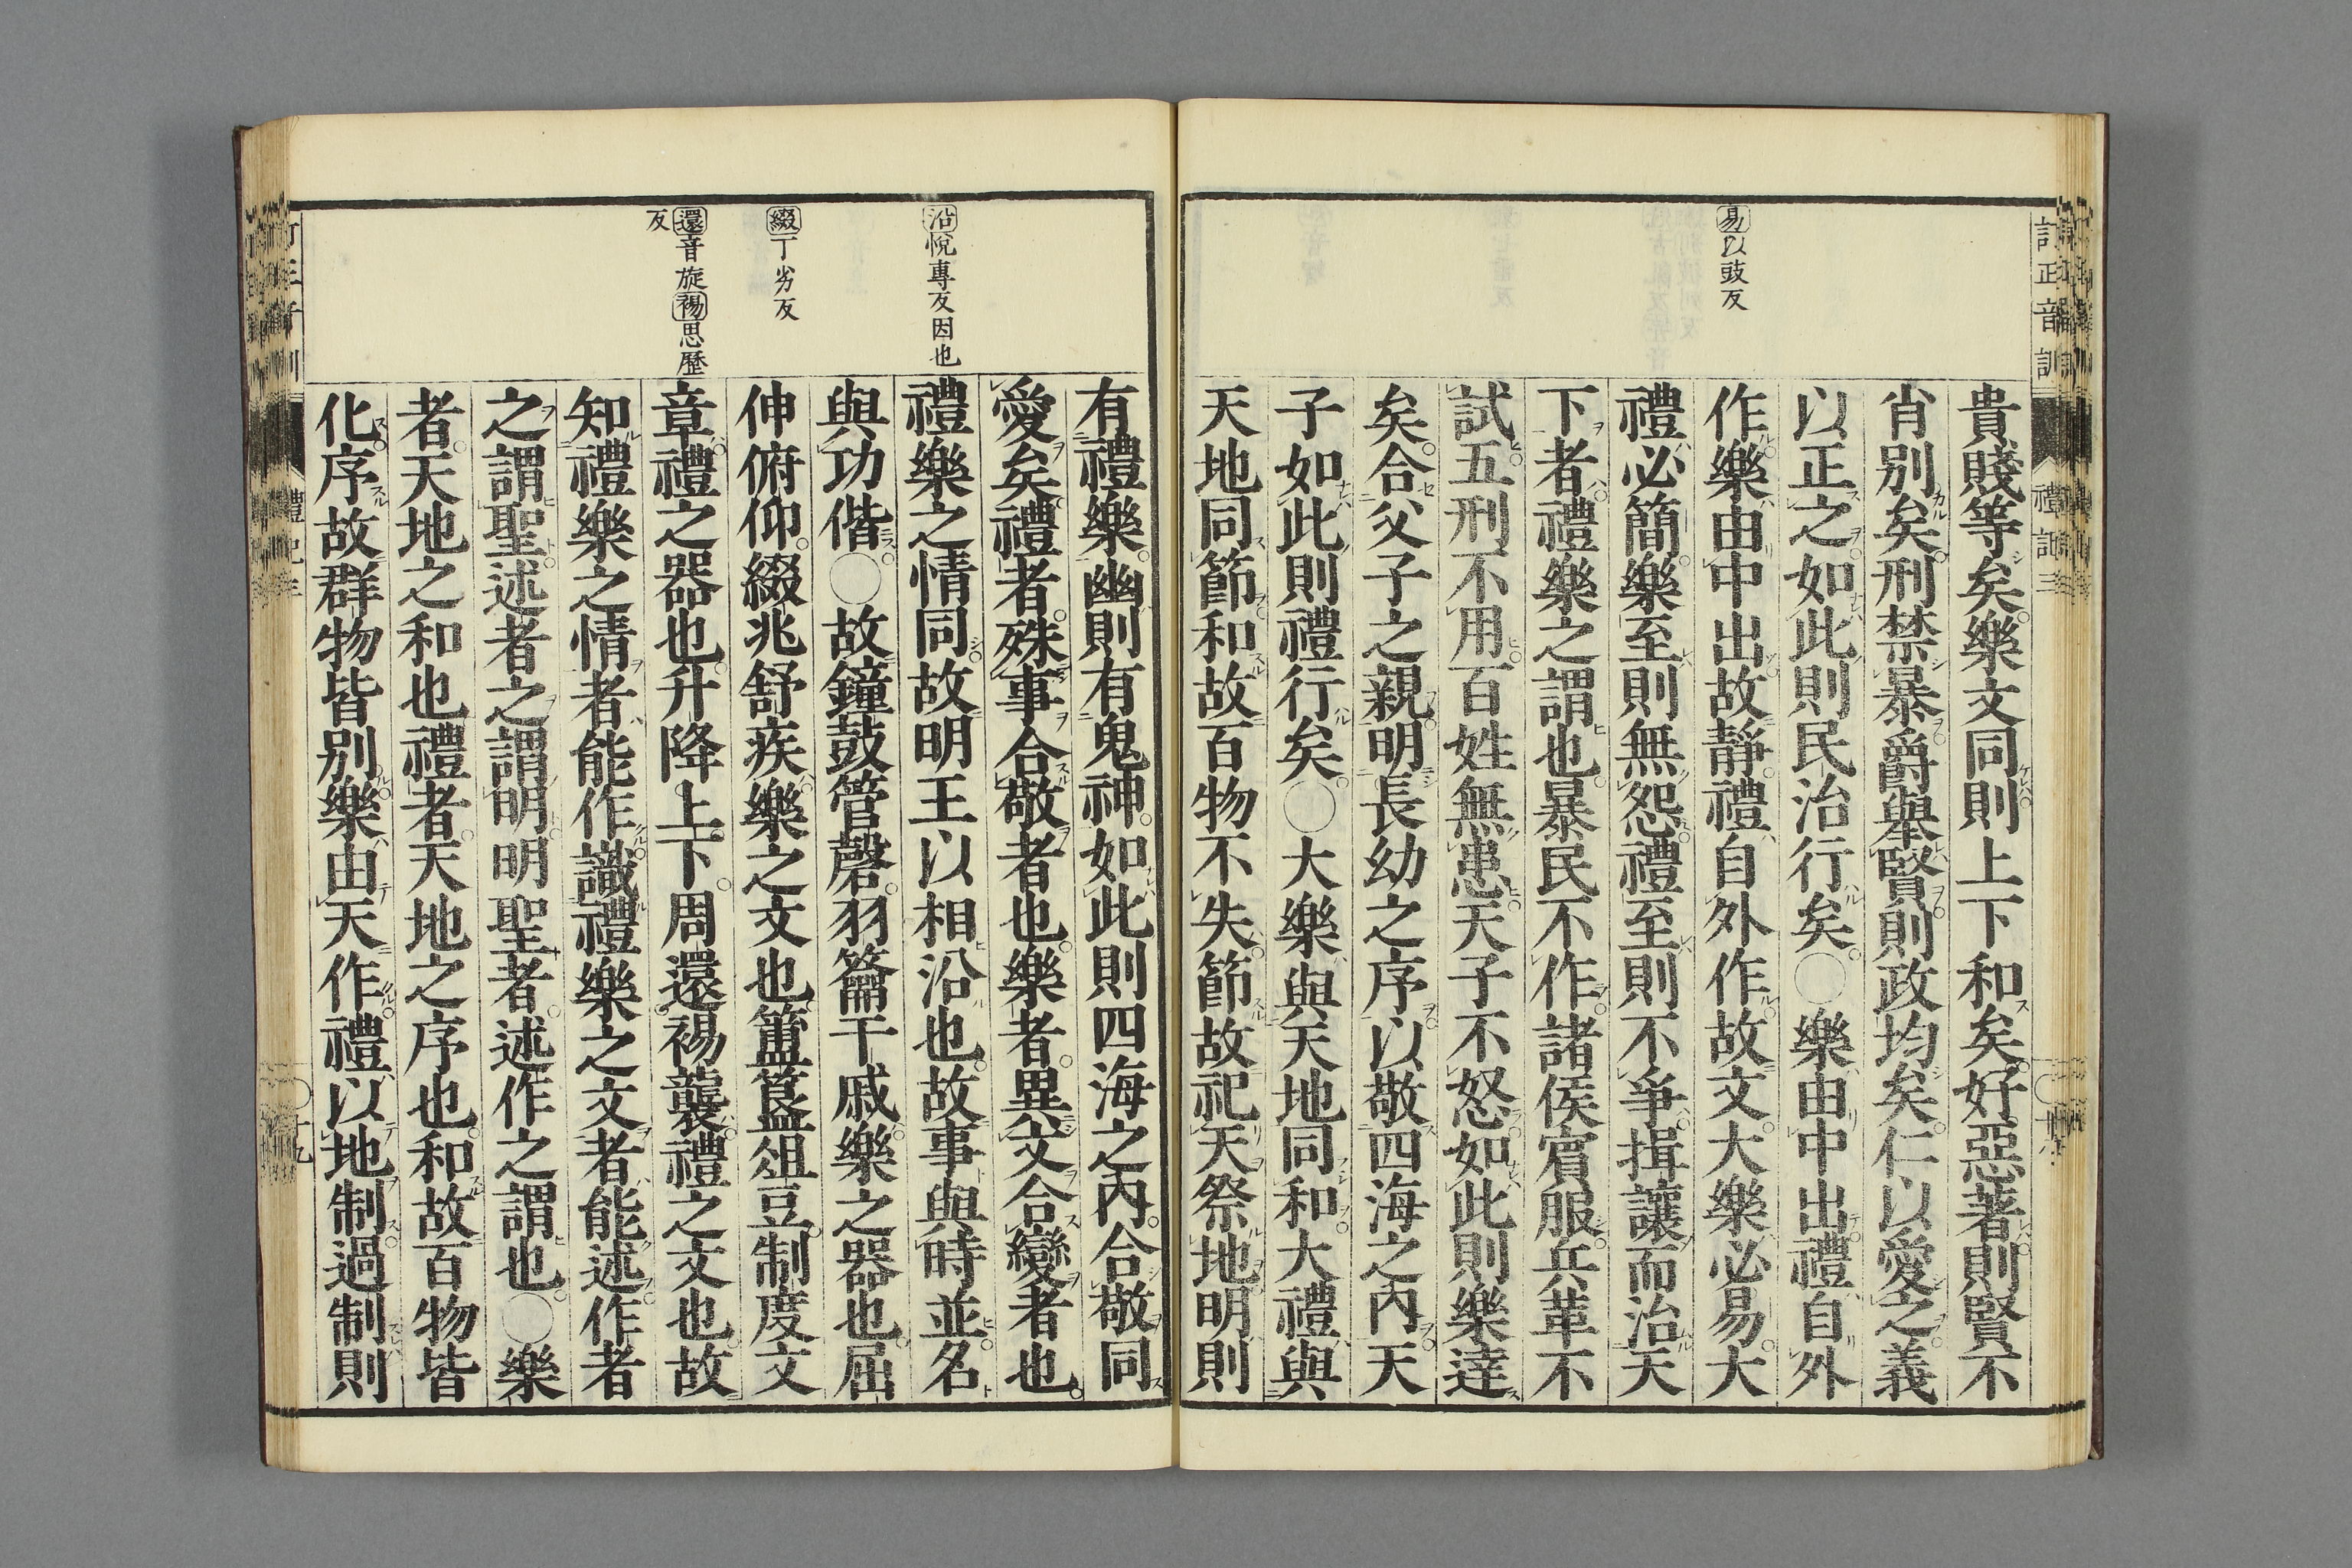 易以豉反
貴賤等矣樂文同則上下和矣好惡著則賢不
肖別矣刑禁暴爵舉賢則政均矣仁以愛之義
以正之如此則民治行矣○樂由中出禮自外
作樂由中出故靜禮自外作故文大樂必易大
禮必簡樂至則無怨禮至則不爭揖讓而治天
下者禮樂之謂也暴民不作諸侯賓服兵革不
試五刑不用百姓無患天子不怒如此則樂達
矣合父子之親明長幼之序以敬四海之內天
子如此則禮行矣○大樂與天地同和大禮與
天地同節和故百物不失節故祀天祭地明則
沿悅專反因也
綴丁劣反
還音旋裼思歷
反
有禮樂幽則有鬼神如此則四海之內合敬同
愛矣禮者殊事合敬者也樂者異文合變者也
禮樂之情同故明王以相沿也故事與時並名
與功偕○故鐘鼓管磬羽籥干戚樂之器也屈
伸俯仰綴兆舒疾樂之文也簠簋俎豆制度文
章禮之器也升降上下周還裼襲禮之文也故
知禮樂之情者能作識禮樂之文者能述作者
之謂聖述者之謂明明聖者述作之謂也○樂
者天地之和也禮者天地之序也和故百物皆
化序故群物皆別樂由天作禮以地制過制則